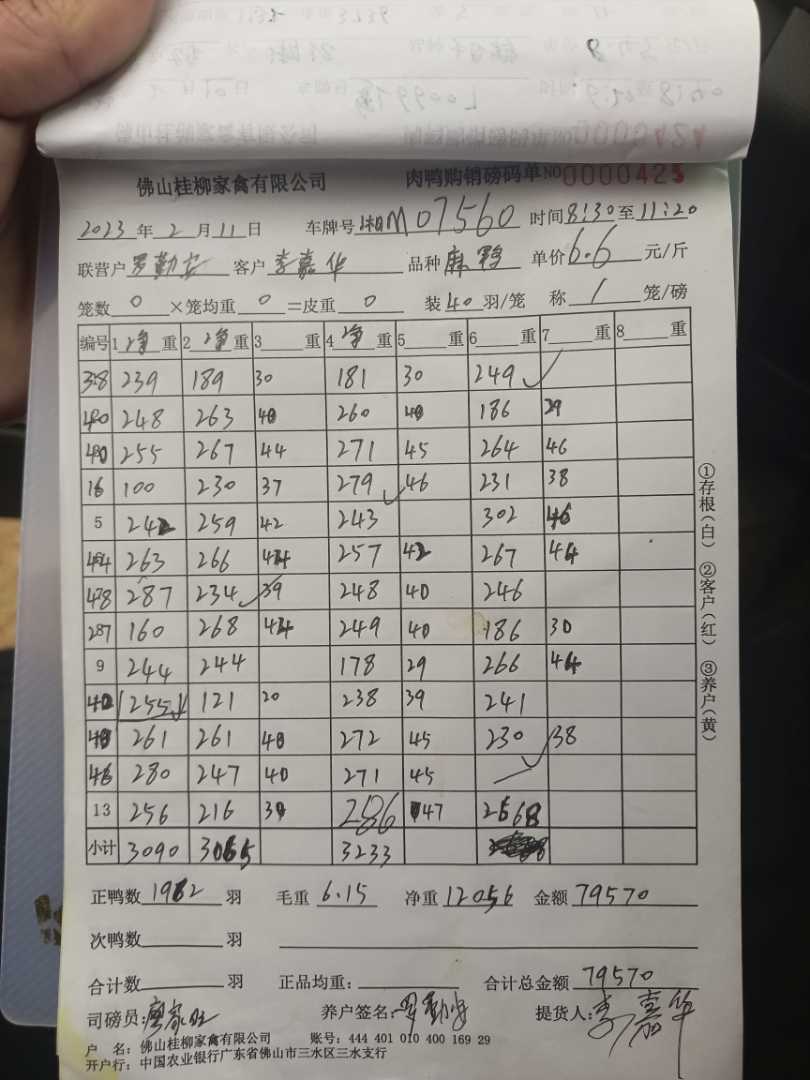 佛山桂柳家禽有限公司 肉鸭购销磅码单 NO 0000425
2023 年 2 月 11 日 车牌号 湘M07560 时间 8:30 至 11:20
联营户 罗勤 客户 李嘉华 品种 麻鸭 单价 6.6 元/斤
笼数 0 ×笼均重 0 =皮重 0 装 40 羽/笼 称 1 笼/磅
编号 1 净 重 2 净 重 3 重 4 净 重 5 重 6 重 7 重 8 重
38 239 189 30 181 30 249
40 248 263 40 260 40 186 29
40 255 267 44 271 45 264 46
16 100 230 37 279 46 231 38
5 242 259 42 243 302 46
44 263 266 44 257 42 267 44
48 287 234 39 248 40 246
287 160 268 44 249 40 186 30
9 244 244 178 29 266 44
40 255 121 20 238 39 241
40 261 261 40 272 45 230 38
46 280 247 40 271 45
13 256 216 39 286 47 2668
小计 3090 3065 3233
正鸭数 1962 羽 毛重 6.15 净重 12056 金额 79570
次鸭数 羽
合计数 羽 正品均重: 合计总金额 79570
司磅员: 养户签名: 罗勤 提货人: 李嘉华
户 名: 佛山桂柳家禽有限公司 账号: 444 401 010 400 169 29
开户行: 中国农业银行广东省佛山市三水区三水支行
①存根(白) ②客户(红) ③养户(黄)